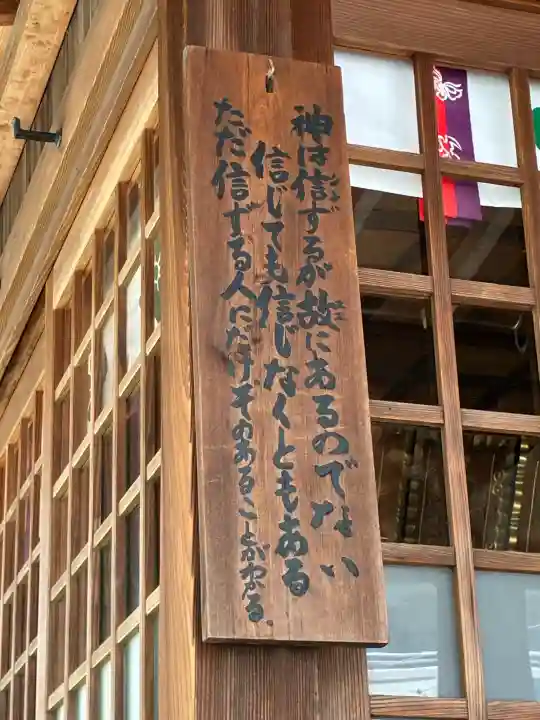 神は信ずるが故にあるのでない
信じても信じなくともある
ただ信ずる人にだけそのあることがわかる